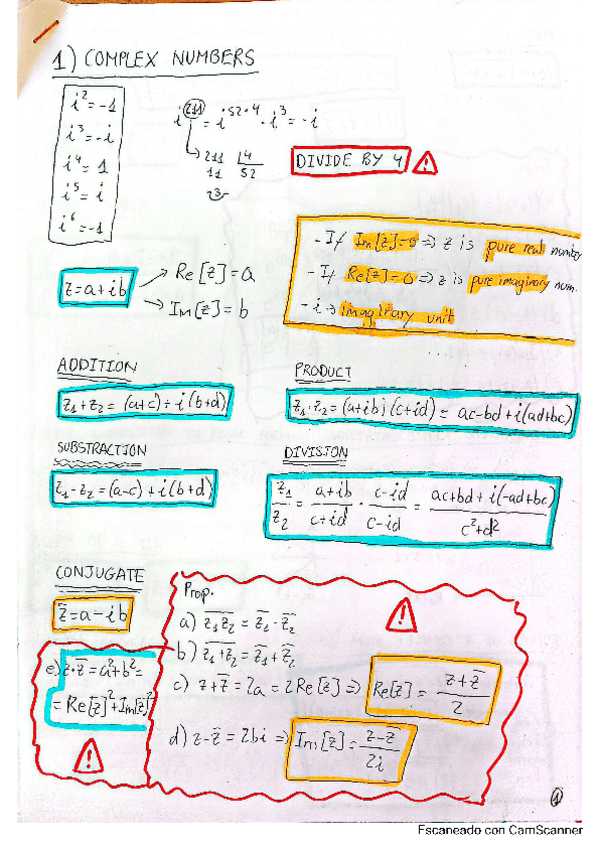 1) COMPLEX NUMBERS
i² = -1
i³ = -i
i⁴ = 1
i⁵ = i
i⁶ = -1
i²¹¹ = i⁵²·⁴ · i³ = -i
211 | 4
11 52
3
DIVIDE BY 4
- If Im[z]=0 ⇒ z is pure real number
- If Re[z]=0 ⇒ z is pure imaginary num.
- i → imaginary unit
z = a+ib
→ Re[z] = a
→ Im[z] = b
ADDITION
z₁+z₂ = (a+c)+i(b+d)
PRODUCT
z₁·z₂ = (a+ib)(c+id) = ac-bd+i(ad+bc)
SUBSTRACTION
z₁-z₂ = (a-c)+i(b+d)
DIVISION
z₁/z₂ = a+ib/c+id · c-id/c-id = ac+bd+i(-ad+bc)/c²+d²
CONJUGATE
z̄ = a-ib
Prop.
a) \overline{z₁z₂} = z̄₁·z̄₂
b) \overline{z₁+z₂} = z̄₁+z̄₂
c) z+z̄ = 2a = 2Re[z] ⇒ Re[z] = z+z̄/2
d) z-z̄ = 2bi ⇒ Im[z] = z-z̄/2i
e) z·z̄ = a²+b² =
= Re[z]²+Im[z]²
1
Escaneado con CamScanner